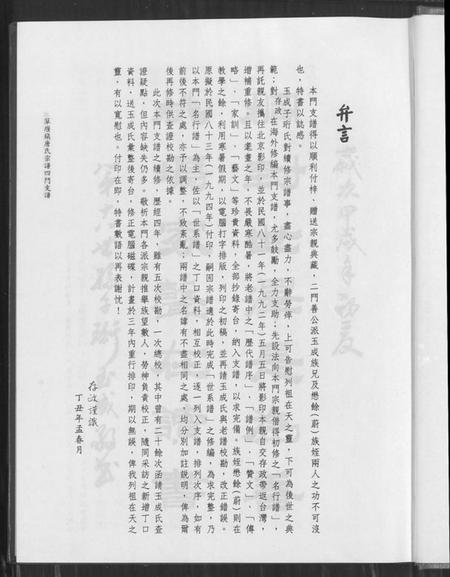 弁言
本門支譜得以順利付梓，贈送宗親典藏，二門善公派玉成族兄及懋餘（蔚）族姪兩人之功不可沒
也，特書以誌感。
玉成子珩氏對續修宗譜事，盡心盡力，不辭勞倅，上可告慰列祖在天之靈，下可為後世之典
範；對存政在海外修編本門支譜，尤多鼓勵，全力支助；先設法向本門宗親借得初修之「名行譜」，
再託親友攜往北京影印，並於民國八十一年(一九九二年)五月五日將影印本親自交存政帶返台灣，
增補重修。且以耄耋之年，不畏嚴寒酷暑，將老譜中之「歷代譜序」、「譜例」、「贊文」、「傳
略」、「家訓」、「藝文」等珍貴資料，全部抄錄寄台，納入支譜，以求完備。族姪懋餘（蔚）則在
教學之餘，利用寒暑假期，以電腦打字排版，列印之初稿，並再請玉成氏與老譜校勘，改正錯誤。
原擬於民國八十三年(一九九四年)付印，嗣因宗譜適於此時完成「世系譜」之修編，為求完整，乃
以本門「名行譜」為主，佐以「世系譜」之丁口資料，相互校正，逐一列入支譜，排列次序，如有
前後不符之處，亦予以調整，不致紊亂；兩譜中之名諱有不盡相同之處，均分別加註說明，俾為爾
後再修時供查證校勘之依據。
此次本門支譜之續修，歷經四年，雖有五次校勘，一次總校，其中曾有二十餘次函請玉成氏查
證疑點，但內容缺失仍多。敬祈本門各派宗親推舉族望數人，勞神負責校正，隨同采訪之新增丁口
資料，送玉成氏彙整後寄台，修正電腦磁碟，計畫於三年內重行排印，期以無誤，俾我列祖在天之
靈，有以寬慰也。付印在即，特書數語以再表謝忱！
存政謹識
丁丑年孟春月
草堰鎮唐氏宗譜四門支譜